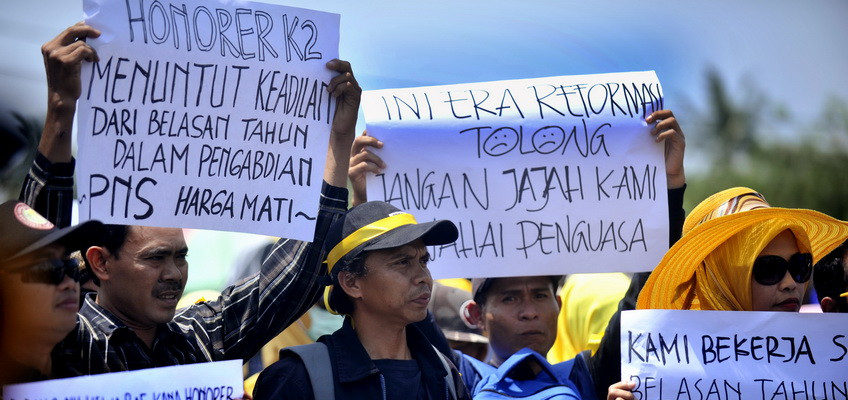 HONORER K2
MENUNTUT KEADILAN
DARI BELASAN TAHUN
DALAM PENGABDIAN
~PNS HARGA MATI~
INI ERA REFORMASI
TOLONG
JANGAN JAJAH KAMI
WAHAI PENGUASA
KAMI BEKERJA S
BELASAN TAHUN
HONORER